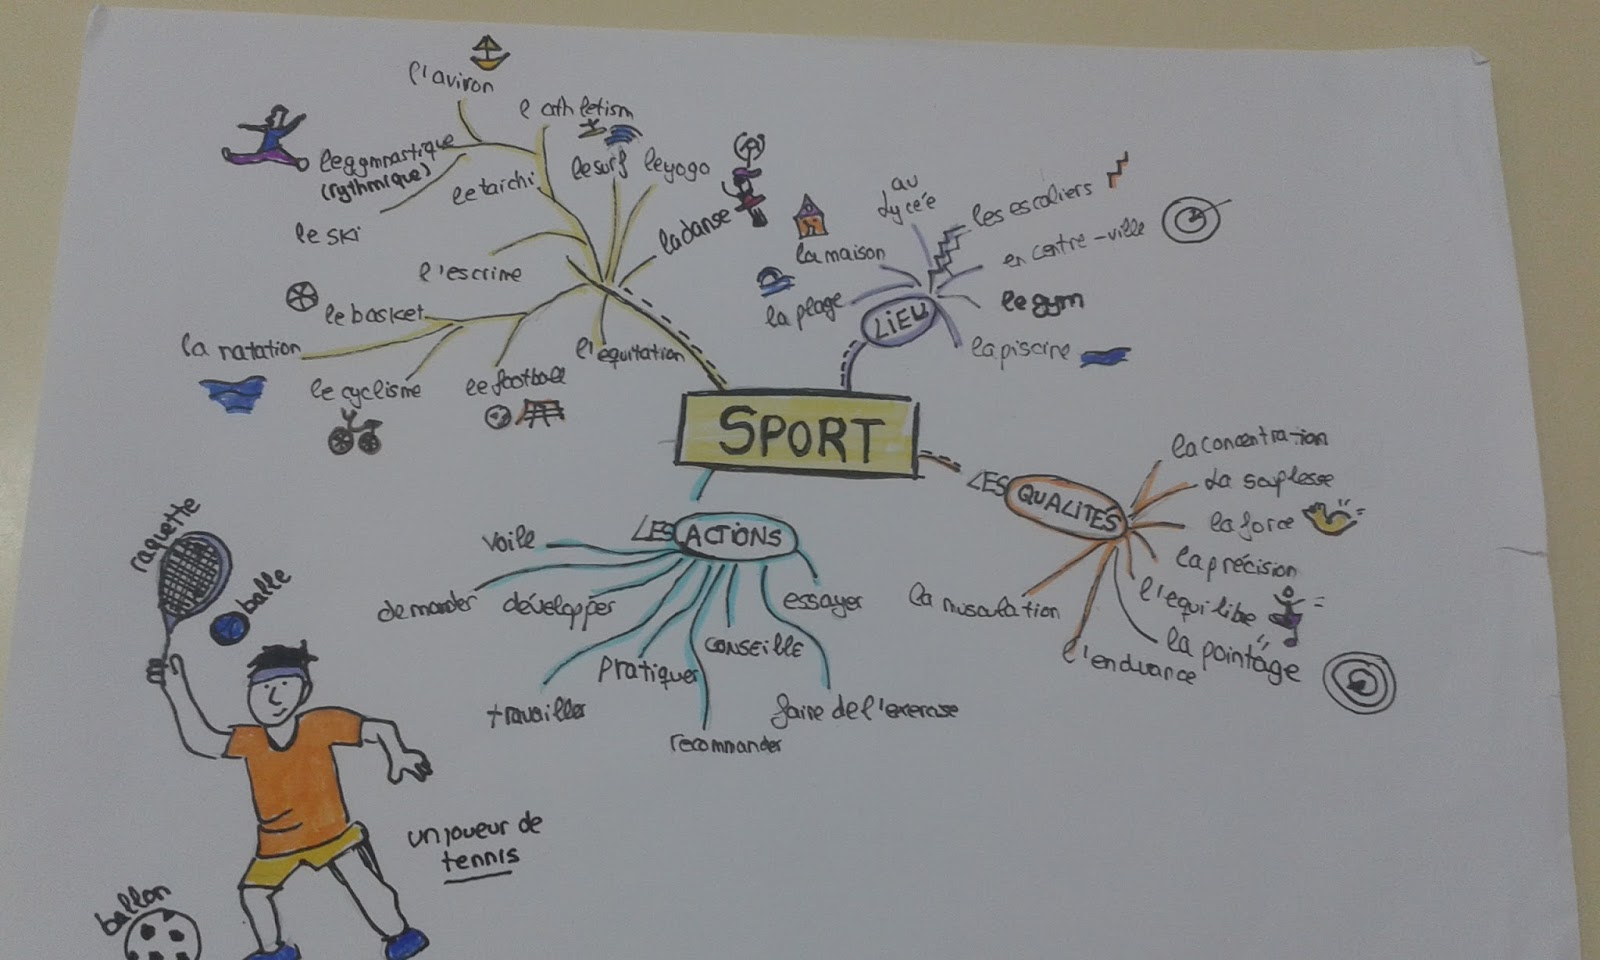 l'aviron
l'athletism
le ggmnastique
(rythmique)
le taichi
le surf
le yogo
la danse
le ski
l'escrime
le basket
la natation
le cyclisme
le football
l'equitation
au
Lycée
les escaliers
la maison
en centre-ville
la plage
LIEU
le gym
la piscine
SPORT
LES QUALITÉS
la concentration
La souplesse
la force
la précision
l'equilibe
la pointage
l'endurance
la musculation
LES ACTIONS
voile
demander
développer
essayer
conseille
pratiquer
travailler
faire de l'exercise
recommander
raquette
balle
un joueur de
tennis
ballon